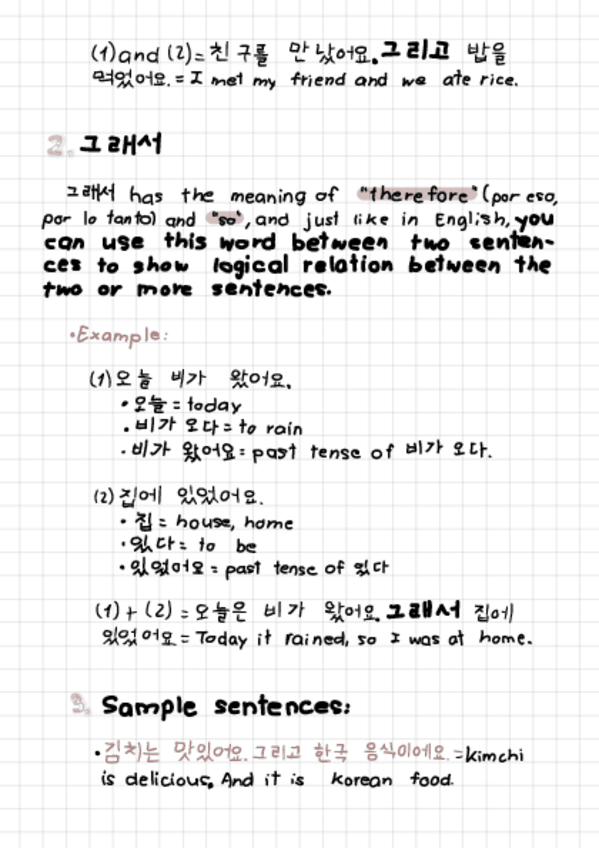 (1) and (2) = 친구를 만났어요. 그리고 밥을
먹었어요. = I met my friend and we ate rice.
2. 그래서
그래서 has the meaning of "therefore" (por eso,
por lo tanto) and "so", and just like in English, you
can use this word between two senten-
ces to show logical relation between the
two or more sentences.
•Example:
(1) 오늘 비가 왔어요.
• 오늘 = today
• 비가 오다 = to rain
• 비가 왔어요 = past tense of 비가 오다.
(2) 집에 있었어요.
• 집 = house, home
• 있다 = to be
• 있었어요 = past tense of 있다
(1) + (2) = 오늘은 비가 왔어요. 그래서 집에
있었어요 = Today it rained, so I was at home.
3. Sample sentences:
• 김치는 맛있어요. 그리고 한국 음식이에요. = kimchi
is delicious, And it is korean food.